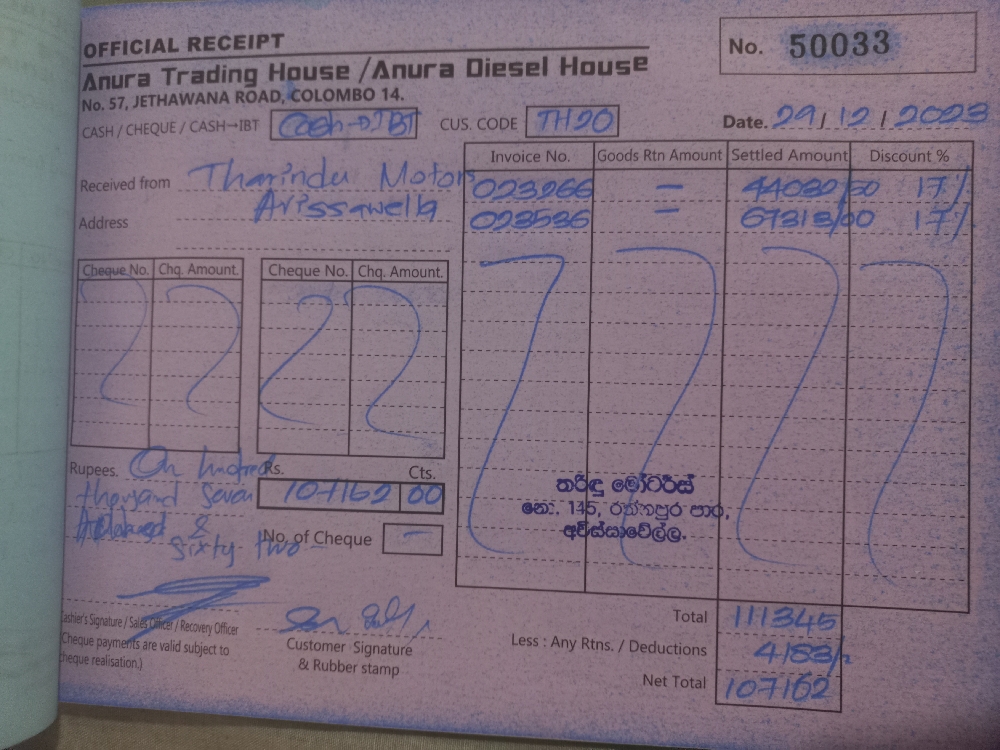 OFFICIAL RECEIPT
No. 50033
Anura Trading House /Anura Diesel House
No. 57, JETHAWANA ROAD, COLOMBO 14.
CASH / CHEQUE / CASH→IBT Cash→IBT CUS. CODE TH20 Date. 29/12/2023
Invoice No. Goods Rtn Amount Settled Amount Discount %
Received from Tharindu Motors
023966 — 44032/00 17%
Address Avissawella
023536 — 67313/00 17%
Cheque No. Chq. Amount. Cheque No. Chq. Amount.
Rupees. On hundred
thousand seven
&
sixty two
Rs. Cts.
107162 00
No. of Cheque —
තරිඳු මෝටර්ස්
නො: 145, රත්නපුර පාර,
අවිස්සාවේල්ල.
Cashier's Signature / Sales Officer / Recovery Officer
(Cheque payments are valid subject to
cheque realisation.)
Customer Signature
& Rubber stamp
Total 111345
Less : Any Rtns. / Deductions 4183/-
Net Total 107162